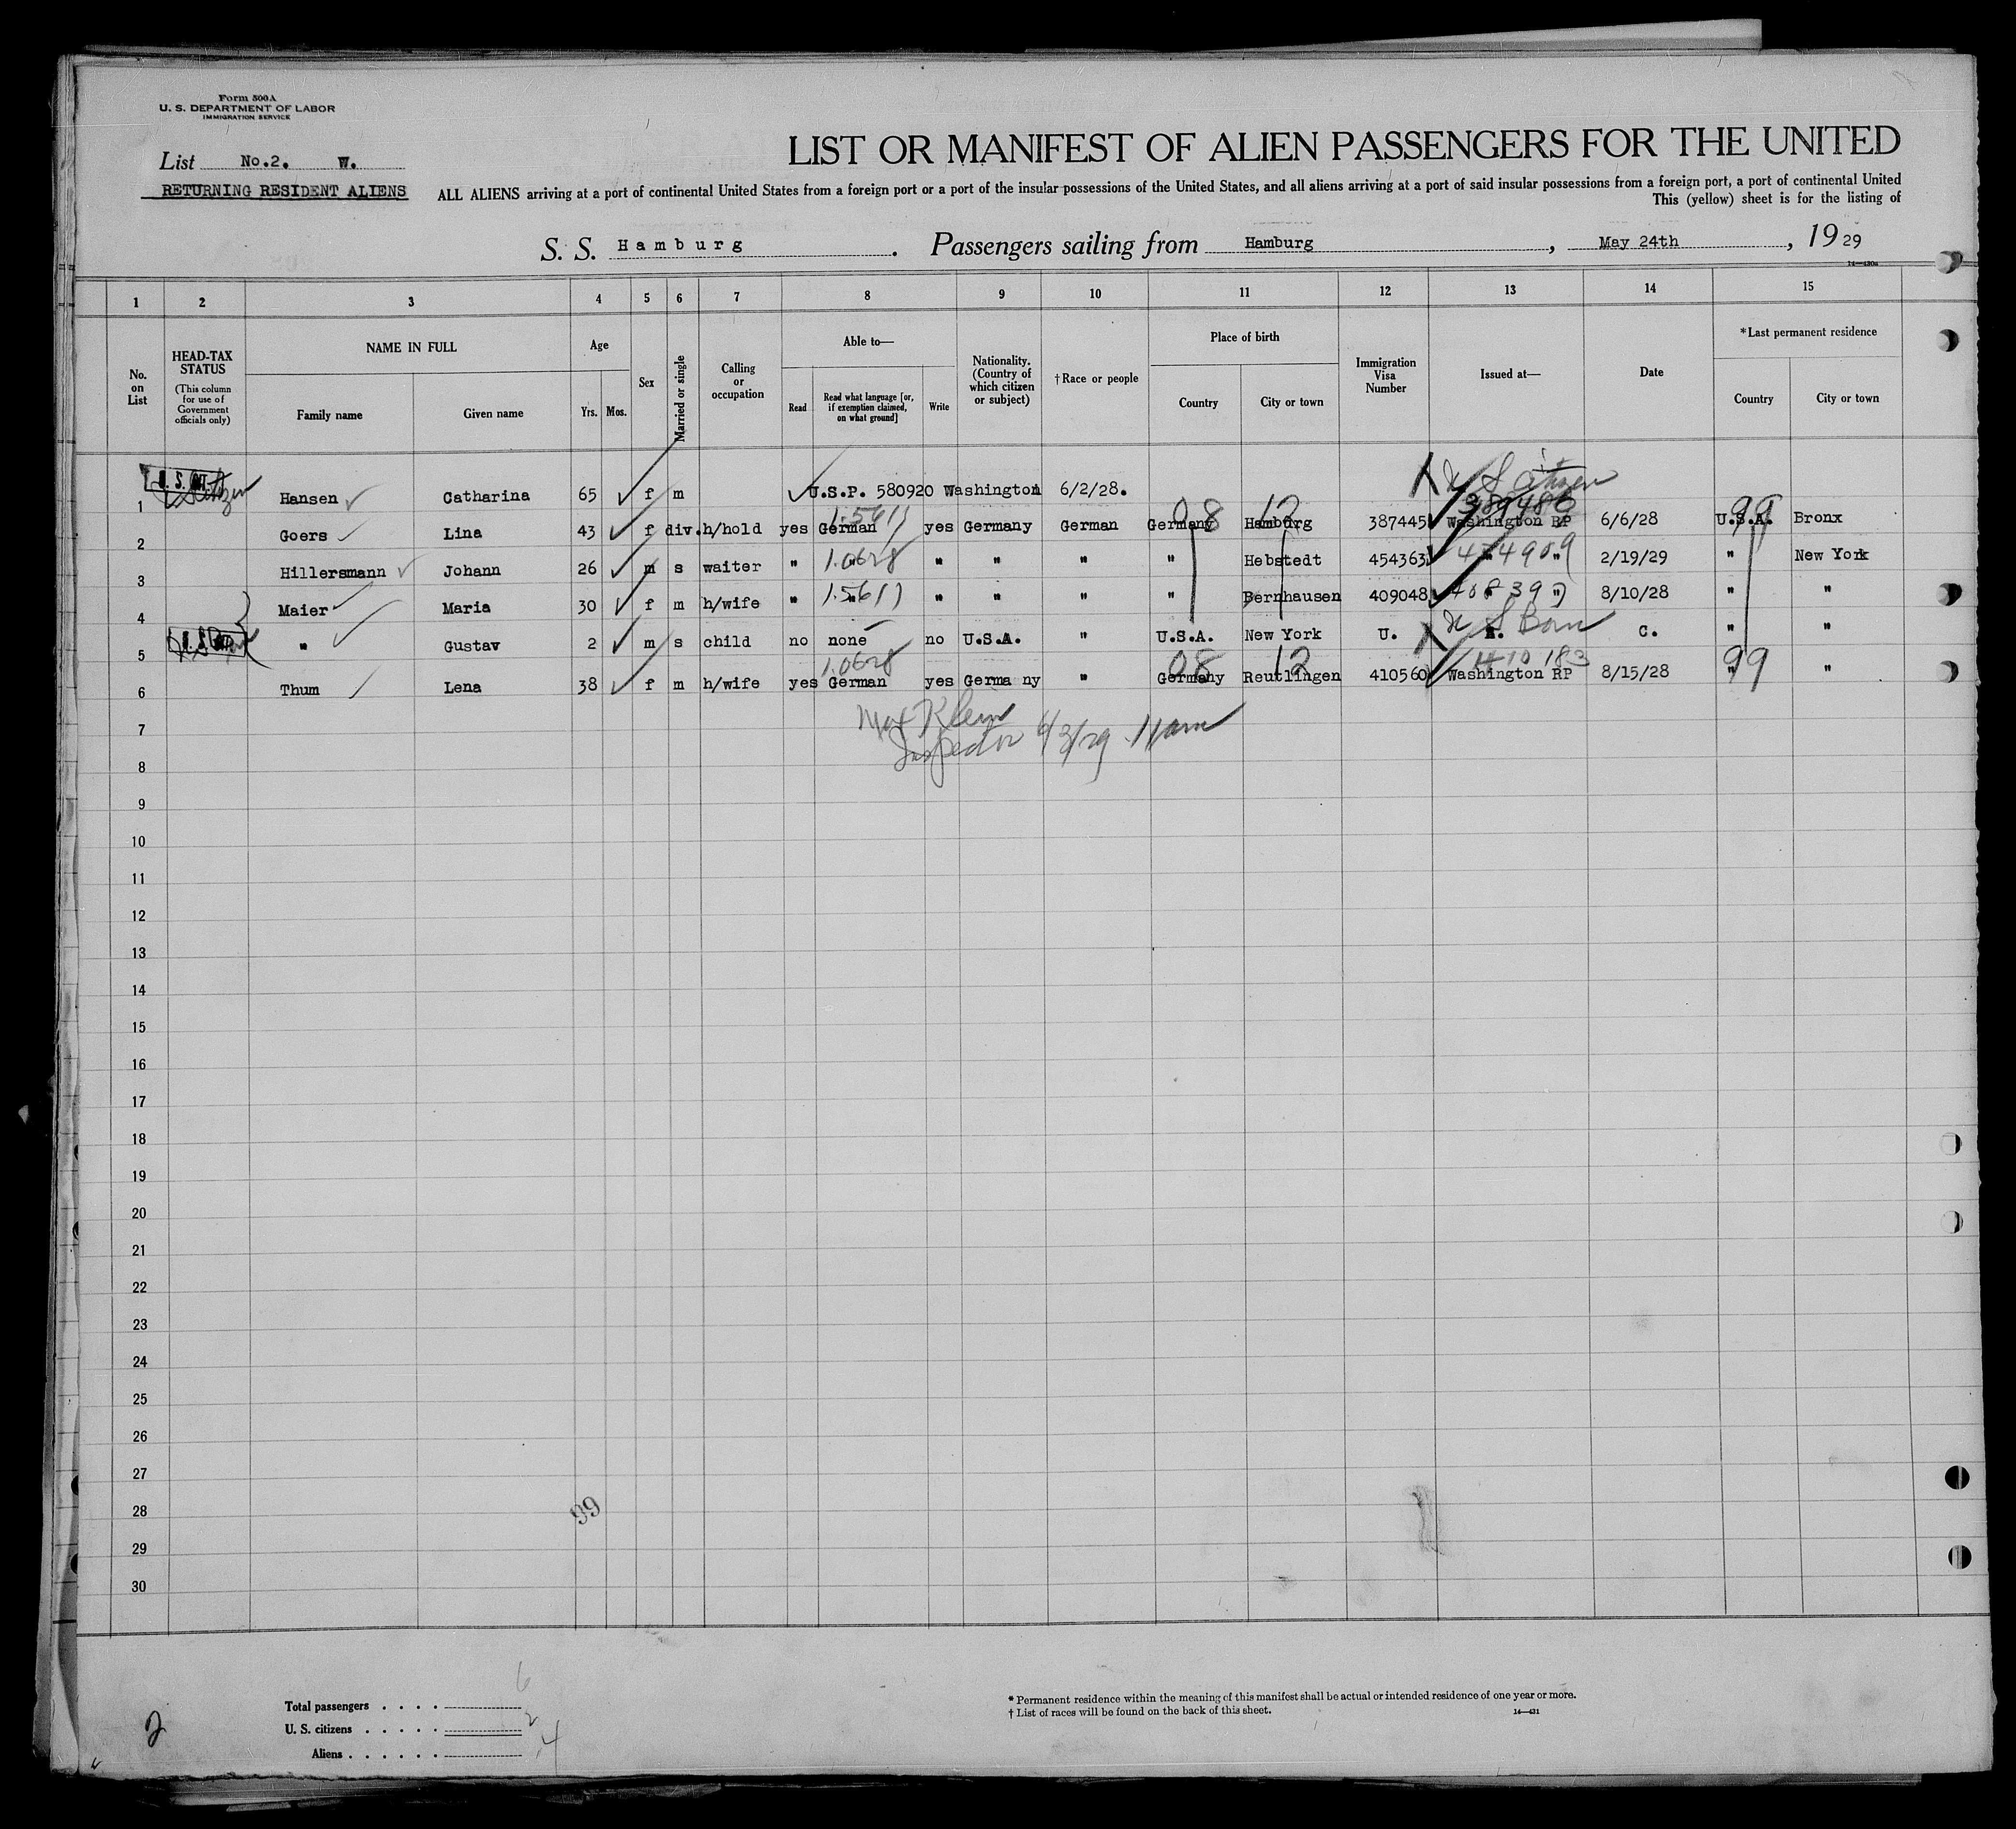 Form 500A
U. S. DEPARTMENT OF LABOR
IMMIGRATION SERVICE
List No.2. W.
RETURNING RESIDENT ALIENS
LIST OR MANIFEST OF ALIEN PASSENGERS FOR THE UNITED
ALL ALIENS arriving at a port of continental United States from a foreign port or a port of the insular possessions of the United States, and all aliens arriving at a port of said insular possessions from a foreign port, a port of continental United
This (yellow) sheet is for the listing of
S. S. Hamburg . Passengers sailing from Hamburg , May 24th , 19 29
14—430a
1 2 3 4 5 6 7 8 9 10 11 12 13 14 15
No. on List
HEAD-TAX STATUS (This column for use of Government officials only)
NAME IN FULL
Family name Given name
Age
Yrs. Mos.
Sex
Married or single
Calling or occupation
Able to—
Read Read what language [or, if exemption claimed, on what ground] Write
Nationality. (Country of which citizen or subject)
† Race or people
Place of birth
Country City or town
Immigration Visa Number
Issued at—
Date
* Last permanent residence
Country City or town
U. S. CIT. U S Citizen
1 Hansen Catharina 65 f m U.S.P. 580920 Washington 6/2/28. U S Citizen
1.5611 08 12 389486 99
2 Goers Lina 43 f div. h/hold yes German yes Germany German Germany Hamburg 387445 Washington RP 6/6/28 U.S.A. Bronx
1.0628 474909
3 Hillersmann Johann 26 m s waiter " " " " " " Hebstedt 454363 " " 2/19/29 " New York
1.5611 408397
4 Maier Maria 30 f m h/wife " " " " " " Bernhausen 409048 " " 8/10/28 " "
U S Born
5 " Gustav 2 m s child no none no U.S.A. " U.S.A. New York U. S. C. " "
1.0628 08 12 410183 99
6 Thum Lena 38 f m h/wife yes German yes Germa ny " Germany Reutlingen 410560 Washington RP 8/15/28 " "
7
Max Klein
Inspector 6/3/29 11am
8
9
10
11
12
13
14
15
16
17
18
19
20
21
22
23
24
25
26
27
28
99
29
30
Total passengers . . . . 6
U. S. citizens . . . . . 2
Aliens . . . . . . 4
2
* Permanent residence within the meaning of this manifest shall be actual or intended residence of one year or more.
† List of races will be found on the back of this sheet.
14—431